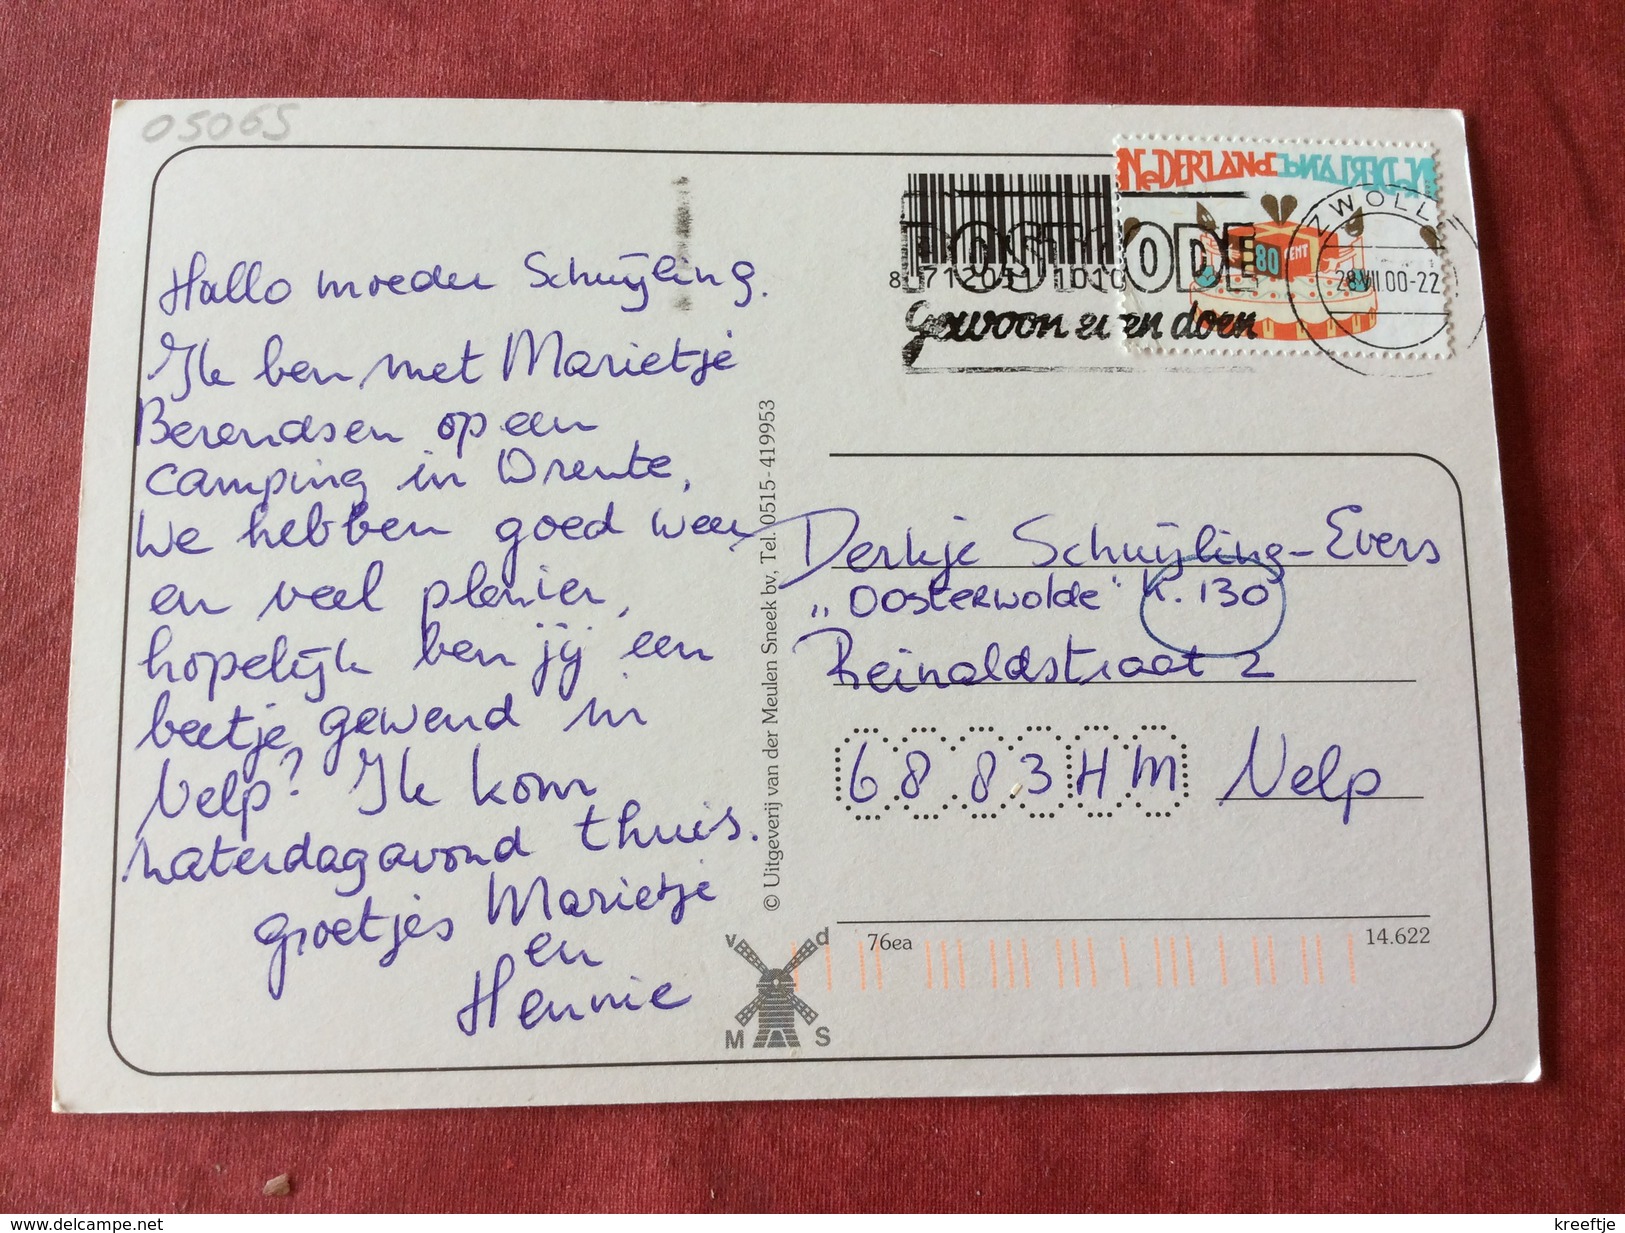 05065
Hallo moeder Schuijling.
Ik ben met Marietje
Berendsen op een
camping in Drente,
We hebben goed weer
en veel plezier,
hopelijk ben jij een
beetje gewend in
Velp? Ik kom
zaterdagavond thuis.
groetjes Marietje
en
Hennie
© Uitgeverij van der Meulen Sneek bv, Tel. 0515-419953
v d
M S
NeDERLANd
80 CENT
POSTKODE
Gewoon even doen
ZWOLLE
28 VII 00-22
Derkje Schuijling-Evers
„Oosterwolde" K. 130
Reinaldstraat 2
6883HM Velp
76ea
14.622
www.delcampe.net
kreeftje